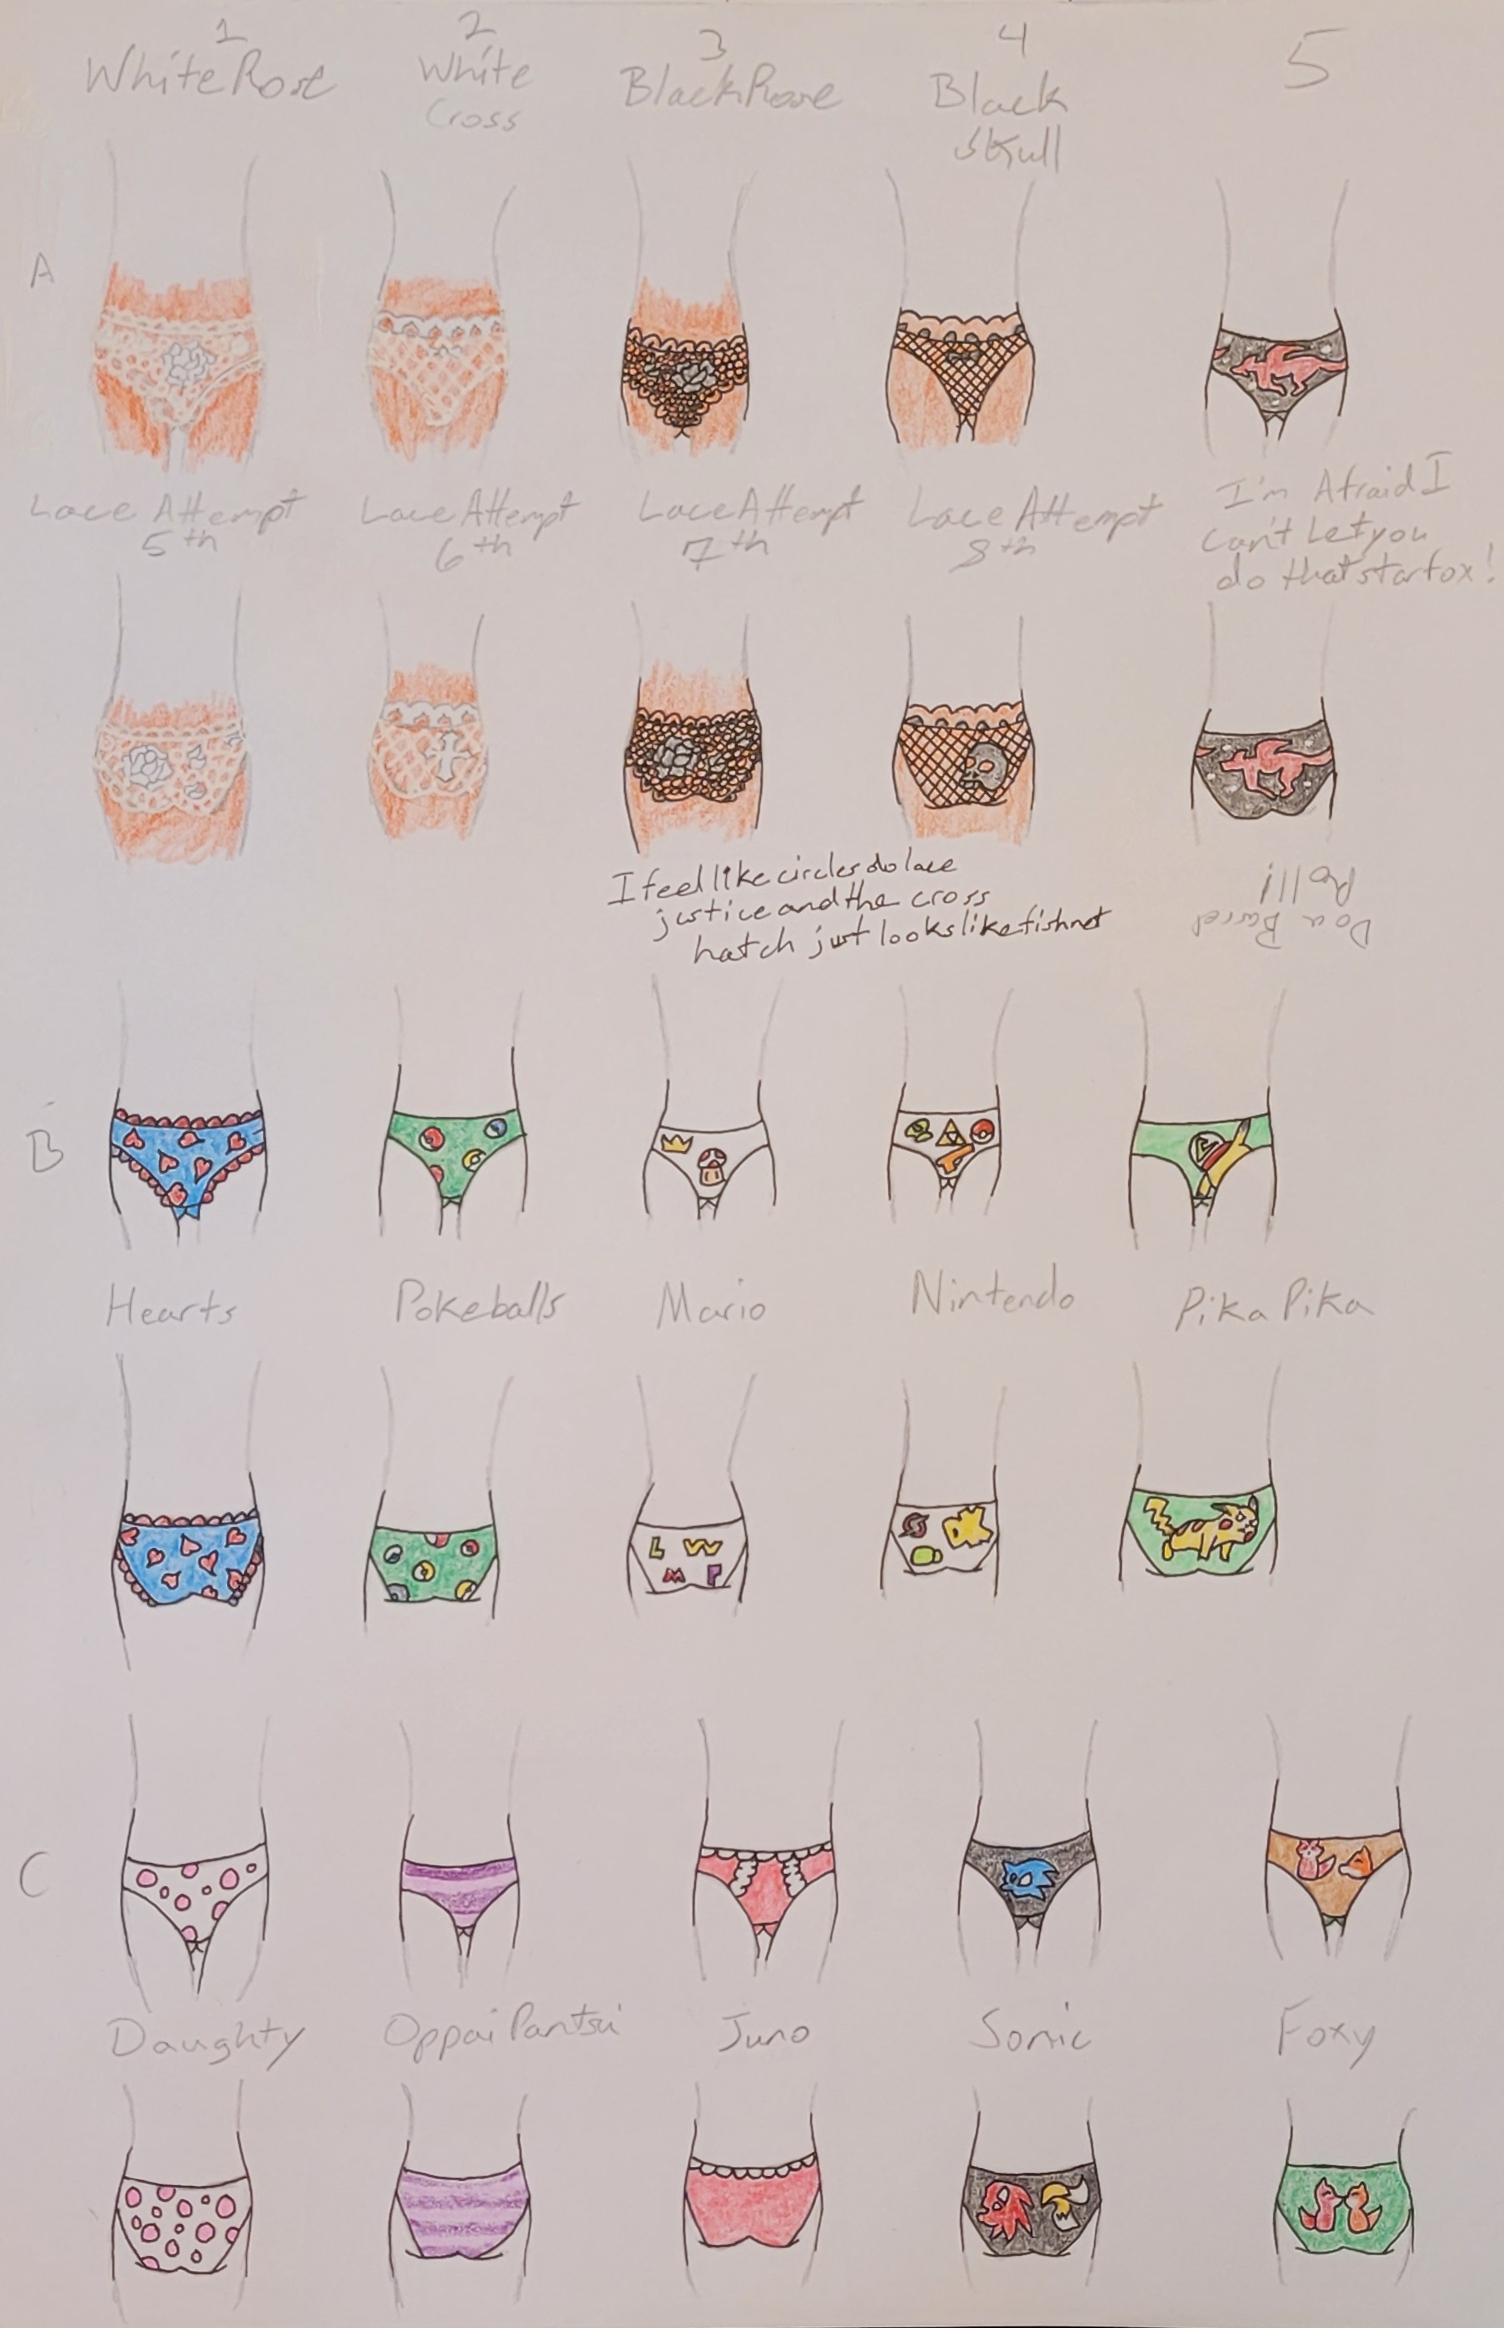 1 2 3 4 5
White Rose
White
Cross
Black Rose
Black
Skull
A
Lace Attempt
5th
Lace Attempt
6th
Lace Attempt
7th
Lace Attempt
8th
I'm Afraid I
can't Let you
do that starfox!
I feel like circles do lace
justice and the cross
hatch just looks like fishnet
Do a Barrel
Roll!!
B
Hearts
Pokeballs
Mario
Nintendo
Pika Pika
L W
M P
C
Daughty
Oppai Pantsu
Juno
Sonic
Foxy